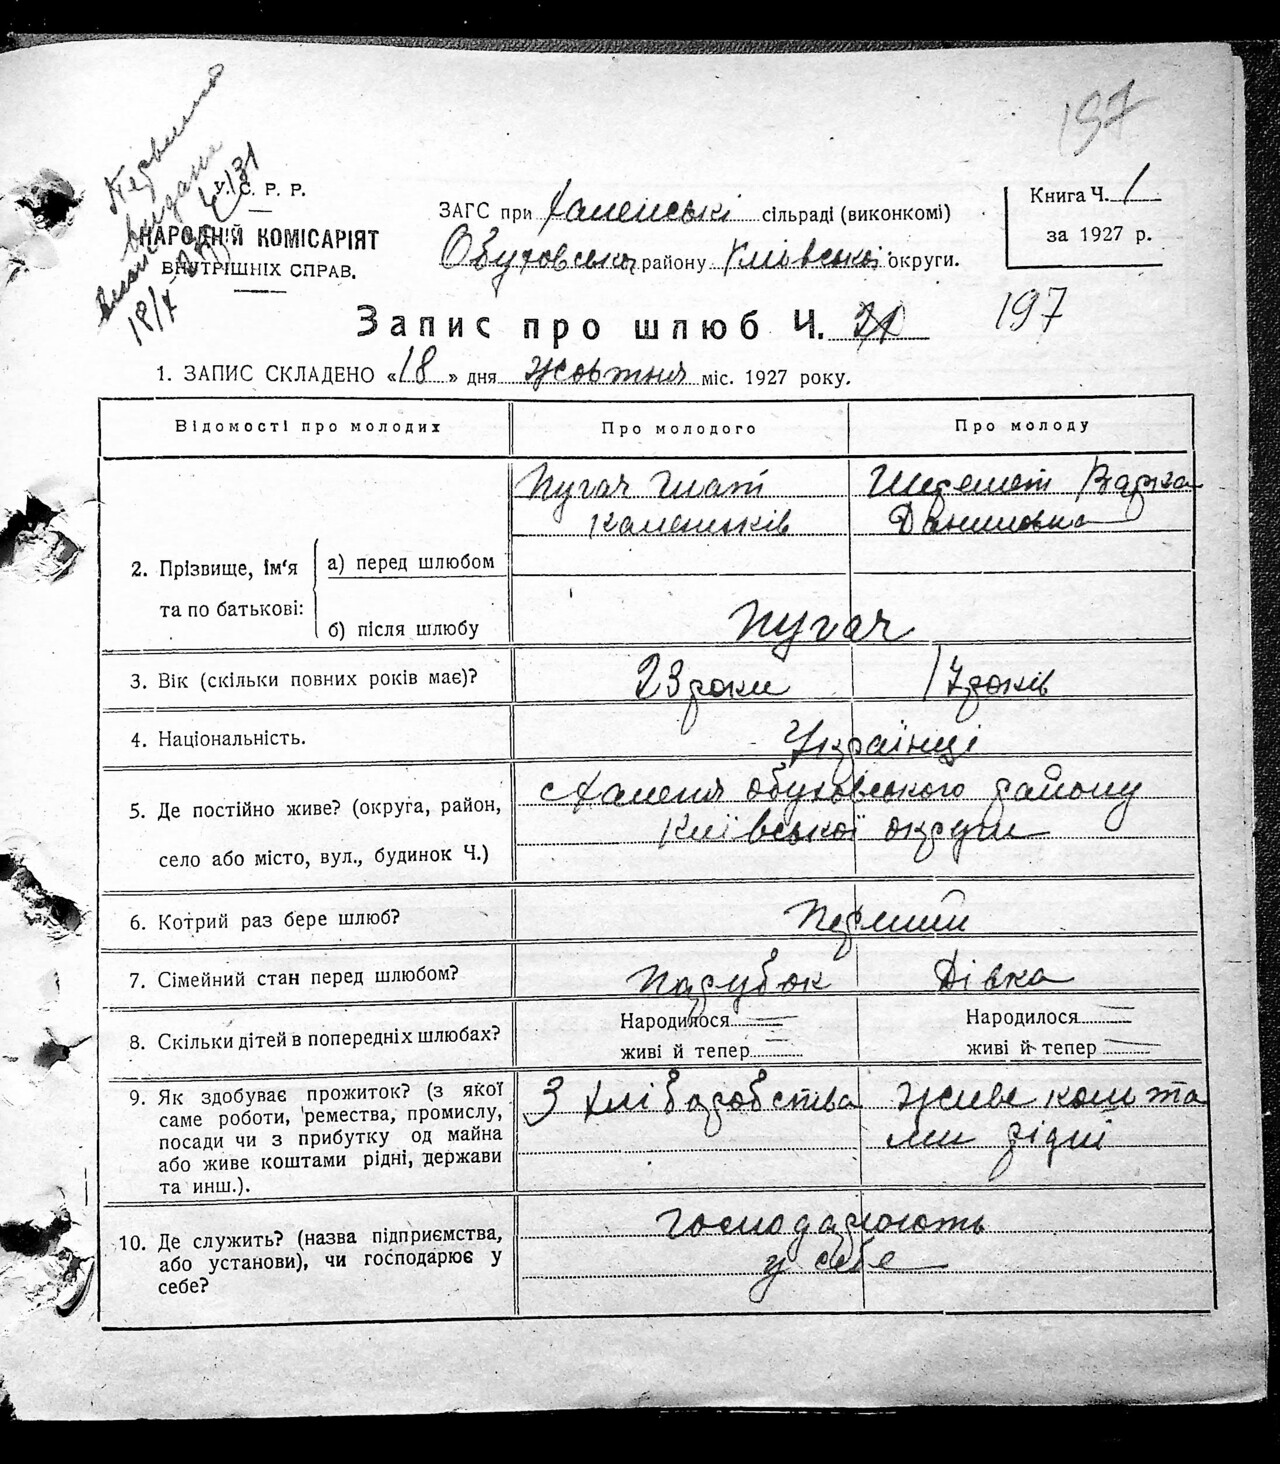 197
У. С. Р. Р.
НАРОДНІЙ КОМІСАРІЯТ
ВНУТРІШНІХ СПРАВ.
ЗАГС при Халепські сільраді (виконкомі)
Обуховського району Київської округи.
Книга Ч. 1
за 1927 р.
197
Запис про шлюб Ч.
1. ЗАПИС СКЛАДЕНО «18» дня жовтня міс. 1927 року.
Відомості про молодих
Про молодого
Про молоду
2. Прізвище, ім'я
та по батькові:
а) перед шлюбом
б) після шлюбу
Пугач
Шеремет Варка
Даниловна
Пугач
3. Вік (скільки повних років має)?
23 роки
17 років
4. Національність.
Українці
5. Де постійно живе? (округа, район,
село або місто, вул., будинок Ч.)
с Халепя обуховського району
київської округи
6. Котрий раз бере шлюб?
Перший
7. Сімейний стан перед шлюбом?
Парубок
Дівка
8. Скільки дітей в попередніх шлюбах?
Народилося
живі й тепер
Народилося
живі й тепер
9. Як здобуває прожиток? (з якої
саме роботи, ремества, промислу,
посади чи з прибутку од майна
або живе коштами рідні, держави
та инш.).
З хліборобства
живе кошта
ми рідні
10. Де служить? (назва підприємства,
або установи), чи господарює у
себе?
Господарюють
у себе